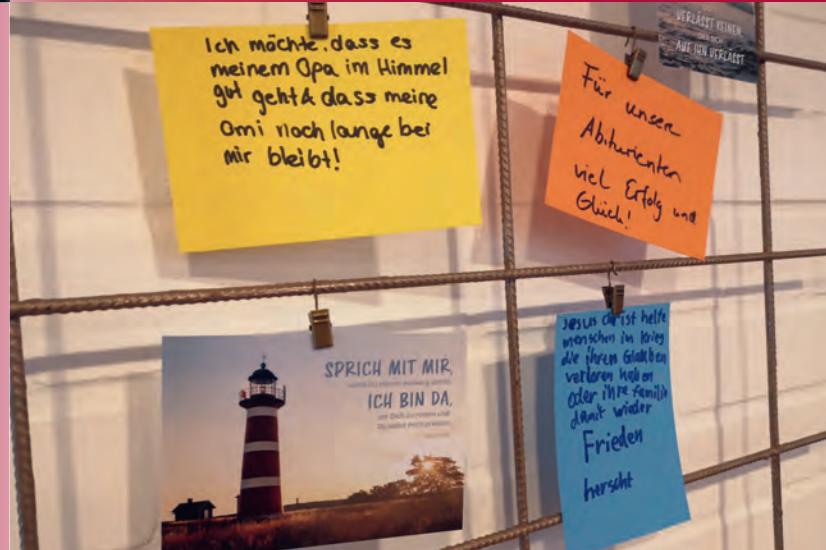 Ich möchte, dass es
meinem Opa im Himmel
gut geht & dass meine
Omi noch lange bei
mir bleibt!
VERLÄSST KEINEN,
DER SICH
AUF IHN VERLÄSST
Für unsere
Abiturienten
viel Erfolg und
Glück!
SPRICH MIT MIR,
ICH BIN DA,
Jesus Christ helfe
menschen im Krieg
die ihren Glauben
verloren haben
oder ihre familie
damit wieder
Frieden
herscht